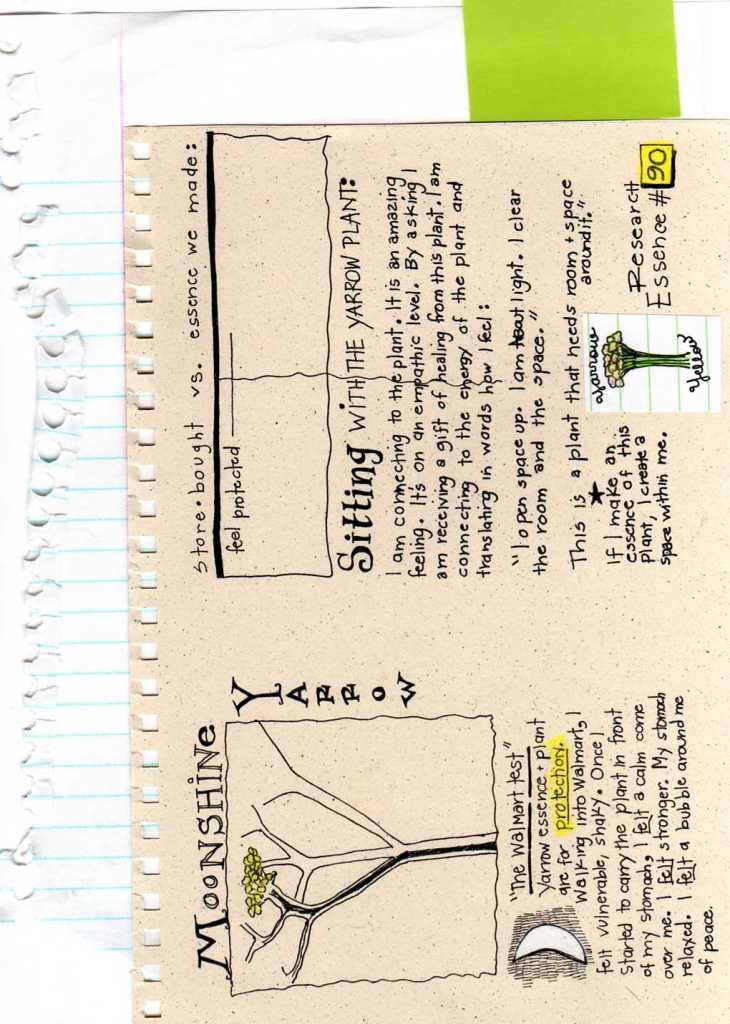 MOONSHINE
YARROW
"The Walmart test"
Yarrow essence + plant
are for protection.
Walking into Walmart, I
felt vulnerable, shaky. Once I
started to carry the plant in front
of my stomach, I felt a calm come
over me. I felt stronger. My stomach
relaxed. I felt a bubble around me
of peace.
store-bought vs. essence we made:
feel protected
Sitting WITH THE YARROW PLANT:
I am connecting to the plant. It is an amazing
feeling. It's on an empathic level. By asking I
am receiving a gift of healing from this plant. I am
connecting to the energy of the plant and
translating in words how I feel:
"I open space up. I am light. I clear
the room and the space."
This is a plant that needs room + space
around it."
If I make an
essence of this
plant, I create a
space within me.
Yarrow
Yellow
Research
Essence # 90